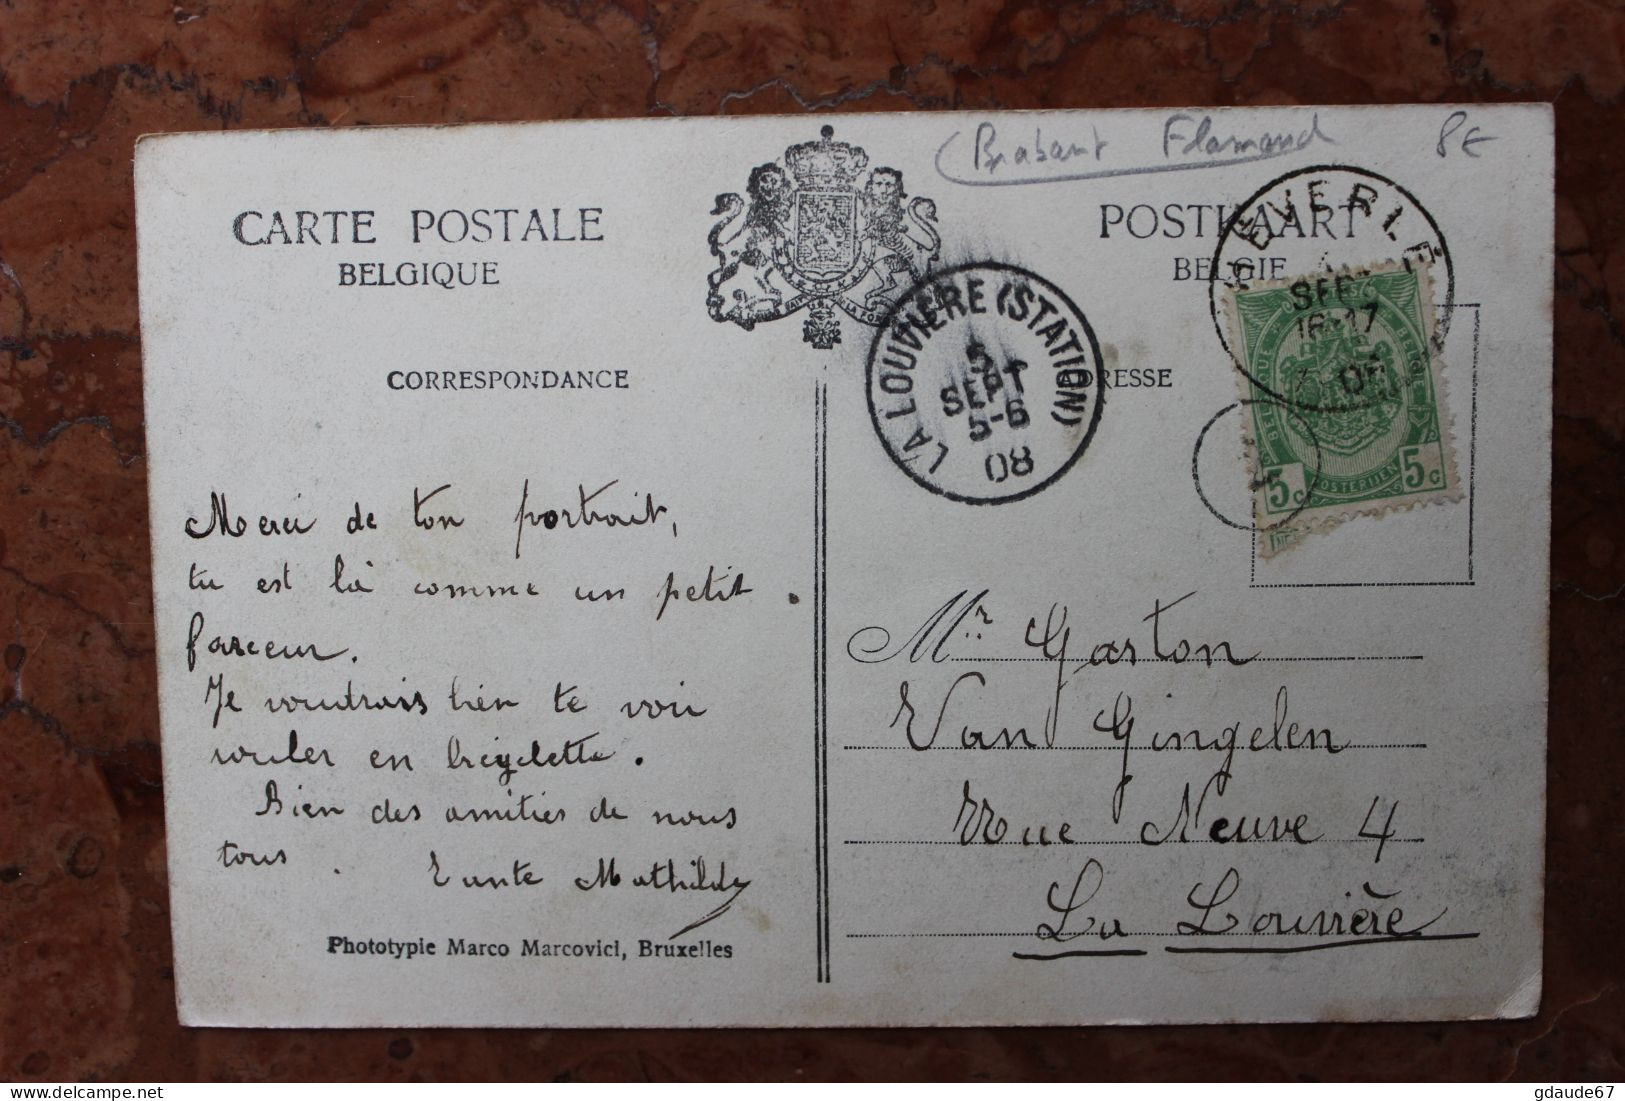 (Brabant Flamand 8€
CARTE POSTALE
BELGIQUE
POSTKAART
BELGIE
CORRESPONDANCE
ADRESSE
LA LOUVIÈRE (STATION)
5
SEPT
5-6
08
HEVERLÉ
4
SEPT
16-17
08
BELGIQUE
BELGIË
5c POSTERIJEN 5c
Merci de ton portrait,
tu est là comme un petit
farceur.
Je voudrais bien te voir
rouler en bicyclette.
Bien des amitiés de nous
tous. Tante Mathilde
Phototypie Marco Marcovici, Bruxelles
Mr. Gaston
Van Gingelen
Rue Neuve 4
La Louvière
delcampe.net
gdaude67